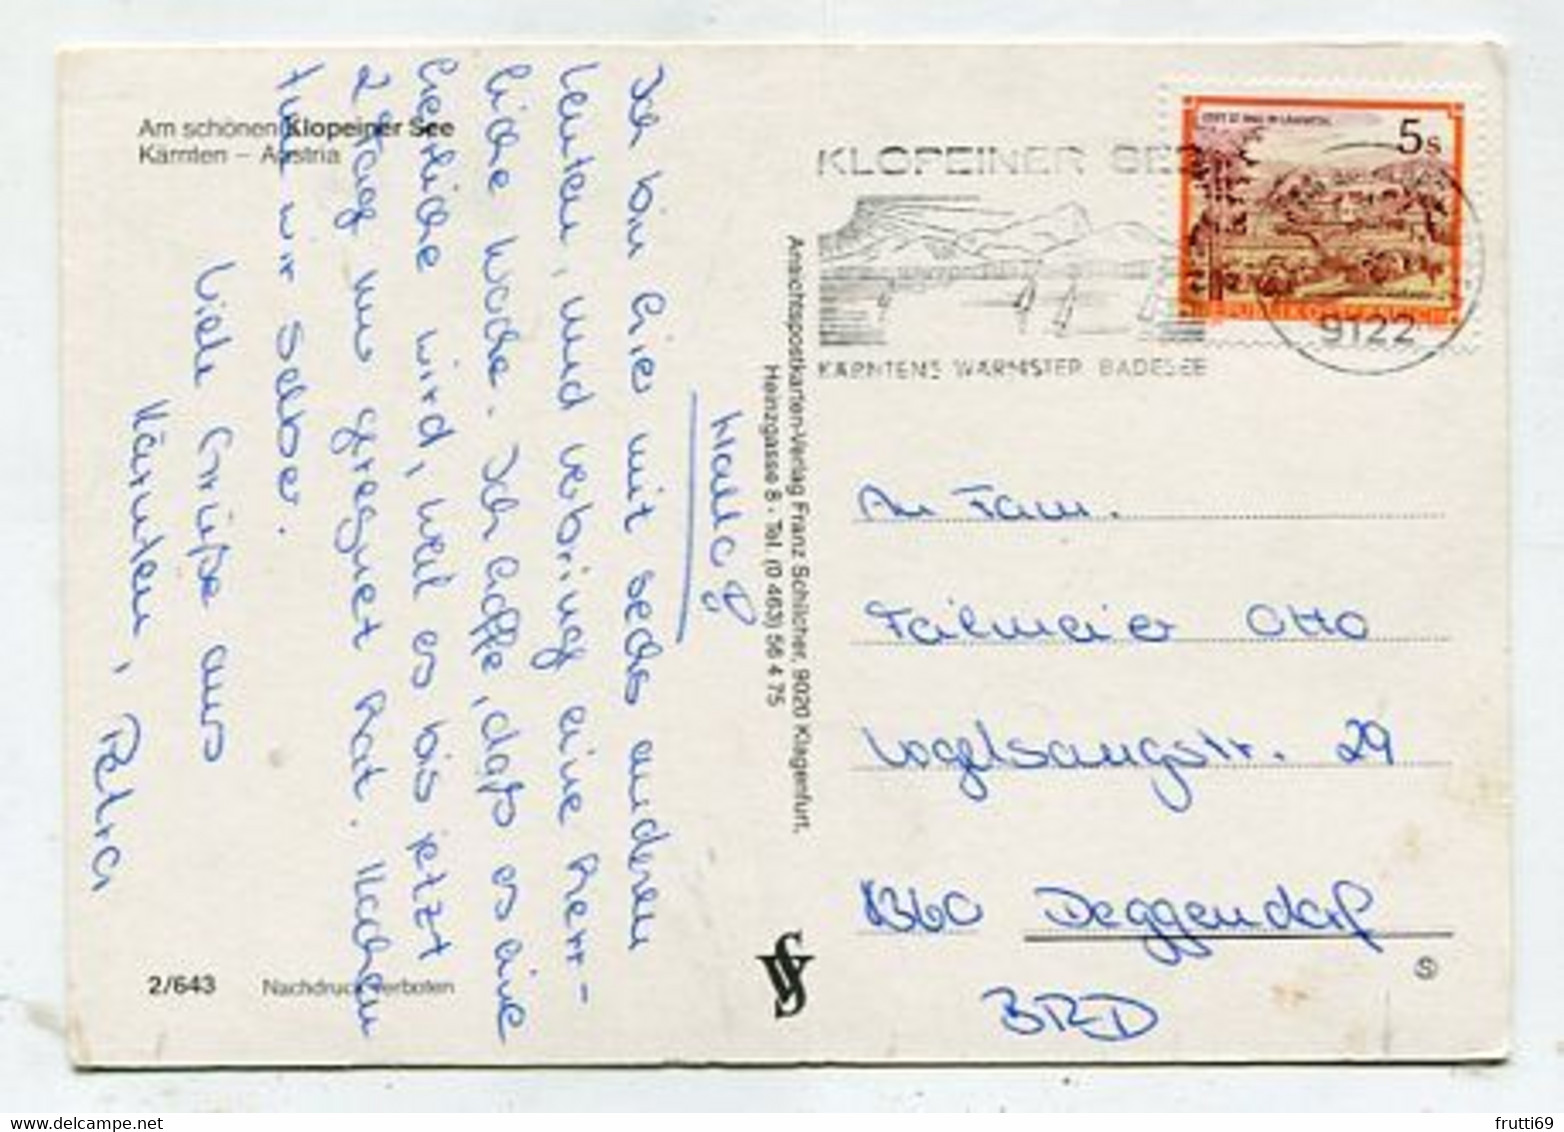 Am schönen Klopeiner See
Kärnten – Austria
Hallo!
Ich bin hier mit sechs anderen
Leuten, und verbringe eine herr-
liche Woche. Ich hoffe, daß es eine
herrliche wird, weil es bis jetzt
2 Tag nur geregnet hat. Kochen
tun wir selber.
Viele Grüße aus
Kärnten, Petra
2/643 Nachdruck verboten
Ansichtspostkarten-Verlag Franz Schilcher, 9020 Klagenfurt,
Heinzgasse 8 · Tel. (0 463) 56 4 75
KLOPEINER SEE
KÄRNTENS WÄRMSTER BADESEE
STIFT ST. PAUL IM LAVANTTAL
5 S
REPUBLIK ÖSTERREICH
9122
An Fam.
Failmeier Otto
Vogelsangstr. 29
8360 Deggendorf
BRD
S
delcampe.net
frutti69